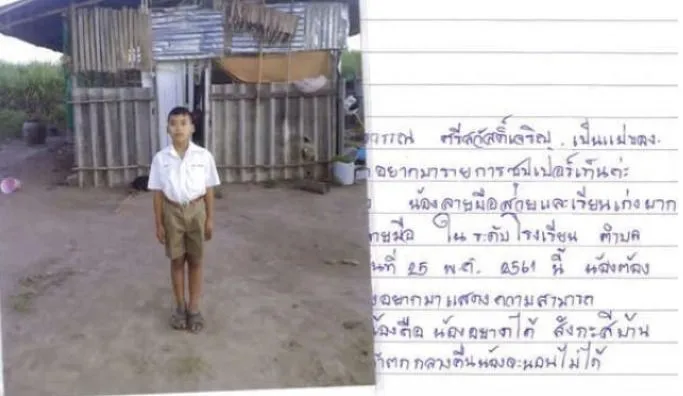 ศรีสวัสดิ์เจริญ เป็นแม่ของ
อยากมารายการซุปเปอร์เท็นค่ะ
น้องลายมือสวยและเรียนเก่งมาก
ลายมือ ในระดับโรงเรียน ตำบล
วันที่ 25 พ.ศ. 2561 นี้ น้องต้อง
อยากมาแสดงความสามารถ
น้องคือ น้องอยากได้ สังกะสีบ้าน
ตกกลางคืนน้องจะนอนไม่ได้